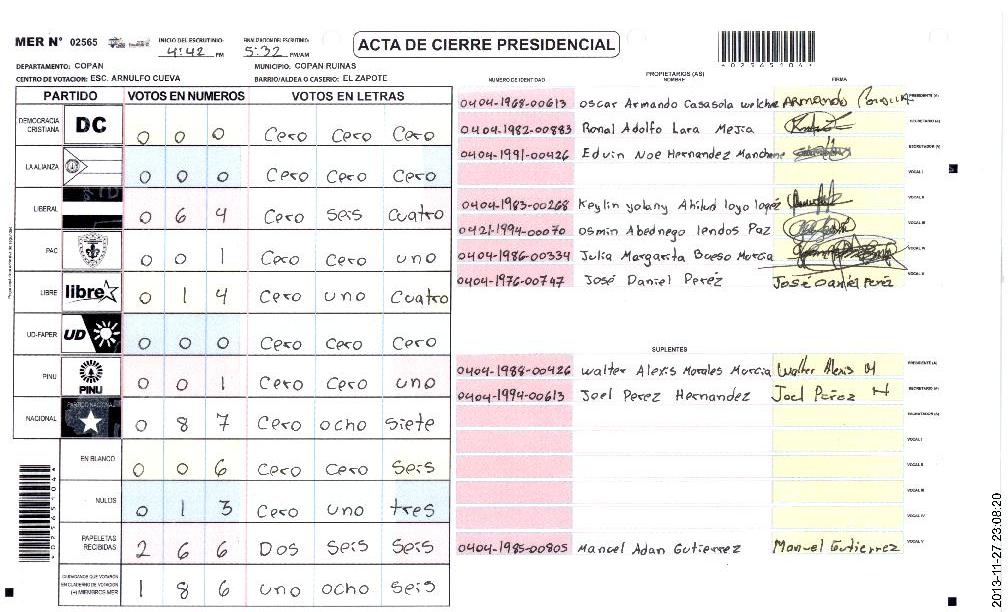 MER Nº 02565
INICIO DEL ESCRUTINIO: 4:42 PM
FINALIZACION DEL ESCRUTINIO: 5:32 PM/AM
ACTA DE CIERRE PRESIDENCIAL
DEPARTAMENTO: COPAN
MUNICIPIO: COPAN RUINAS
CENTRO DE VOTACION: ESC. ARNULFO CUEVA
BARRIO/ALDEA O CASERIO: EL ZAPOTE
PARTIDO VOTOS EN NUMEROS VOTOS EN LETRAS
DEMOCRACIA CRISTIANA DC 0 0 0 Cero Cero Cero
LA ALIANZA 0 0 0 Cero Cero Cero
LIBERAL 0 6 4 Cero Seis Cuatro
PAC 0 0 1 Cero Cero uno
LIBRE libre 0 1 4 Cero uno Cuatro
UD-FAPER UD 0 0 0 Cero Cero Cero
PINU PINU 0 0 1 Cero Cero uno
NACIONAL PARTIDO NACIONAL 0 8 7 Cero ocho siete
EN BLANCO 0 0 6 Cero Cero Seis
NULOS 0 1 3 Cero uno tres
PAPELETAS RECIBIDAS 2 6 6 Dos Seis Seis
CIUDADANOS QUE VOTARON EN CUADERNO DE VOTACION (+) MIEMBROS MER 1 8 6 uno ocho Seis
PROPIETARIOS (AS)
NUMERO DE IDENTIDAD NOMBRE FIRMA
0404-1968-00613 oscar Armando Casasola welche ARMANDO PRESIDENTE (A)
0404-1982-00883 Ronal Adolfo Lara Mejia SECRETARIO (A)
0404-1991-00426 Edvin Noe Hernandez Manchame ESCRUTADOR (A)
VOCAL I
0404-1983-00268 Keylin yolany loyo lopez VOCAL II
0421-1994-00070 osmin Abednego lendos Paz VOCAL III
0404-1986-00334 Julia Margarita Bueso Murcia VOCAL IV
0404-1976-00747 José Daniel Peréz José Daniel Peréz VOCAL V
SUPLENTES
0404-1988-00426 walter Alexis Morales Murcia Walter Alexis M PRESIDENTE (A)
0404-1994-00613 Joel Perez Hernandez Joel Pérez H SECRETARIO (A)
ESCRUTADOR (A)
VOCAL I
VOCAL II
VOCAL III
VOCAL IV
0404-1985-00805 Manuel Adan Gutierrez Manuel Gutierrez VOCAL V
2013-11-27 23:08:20